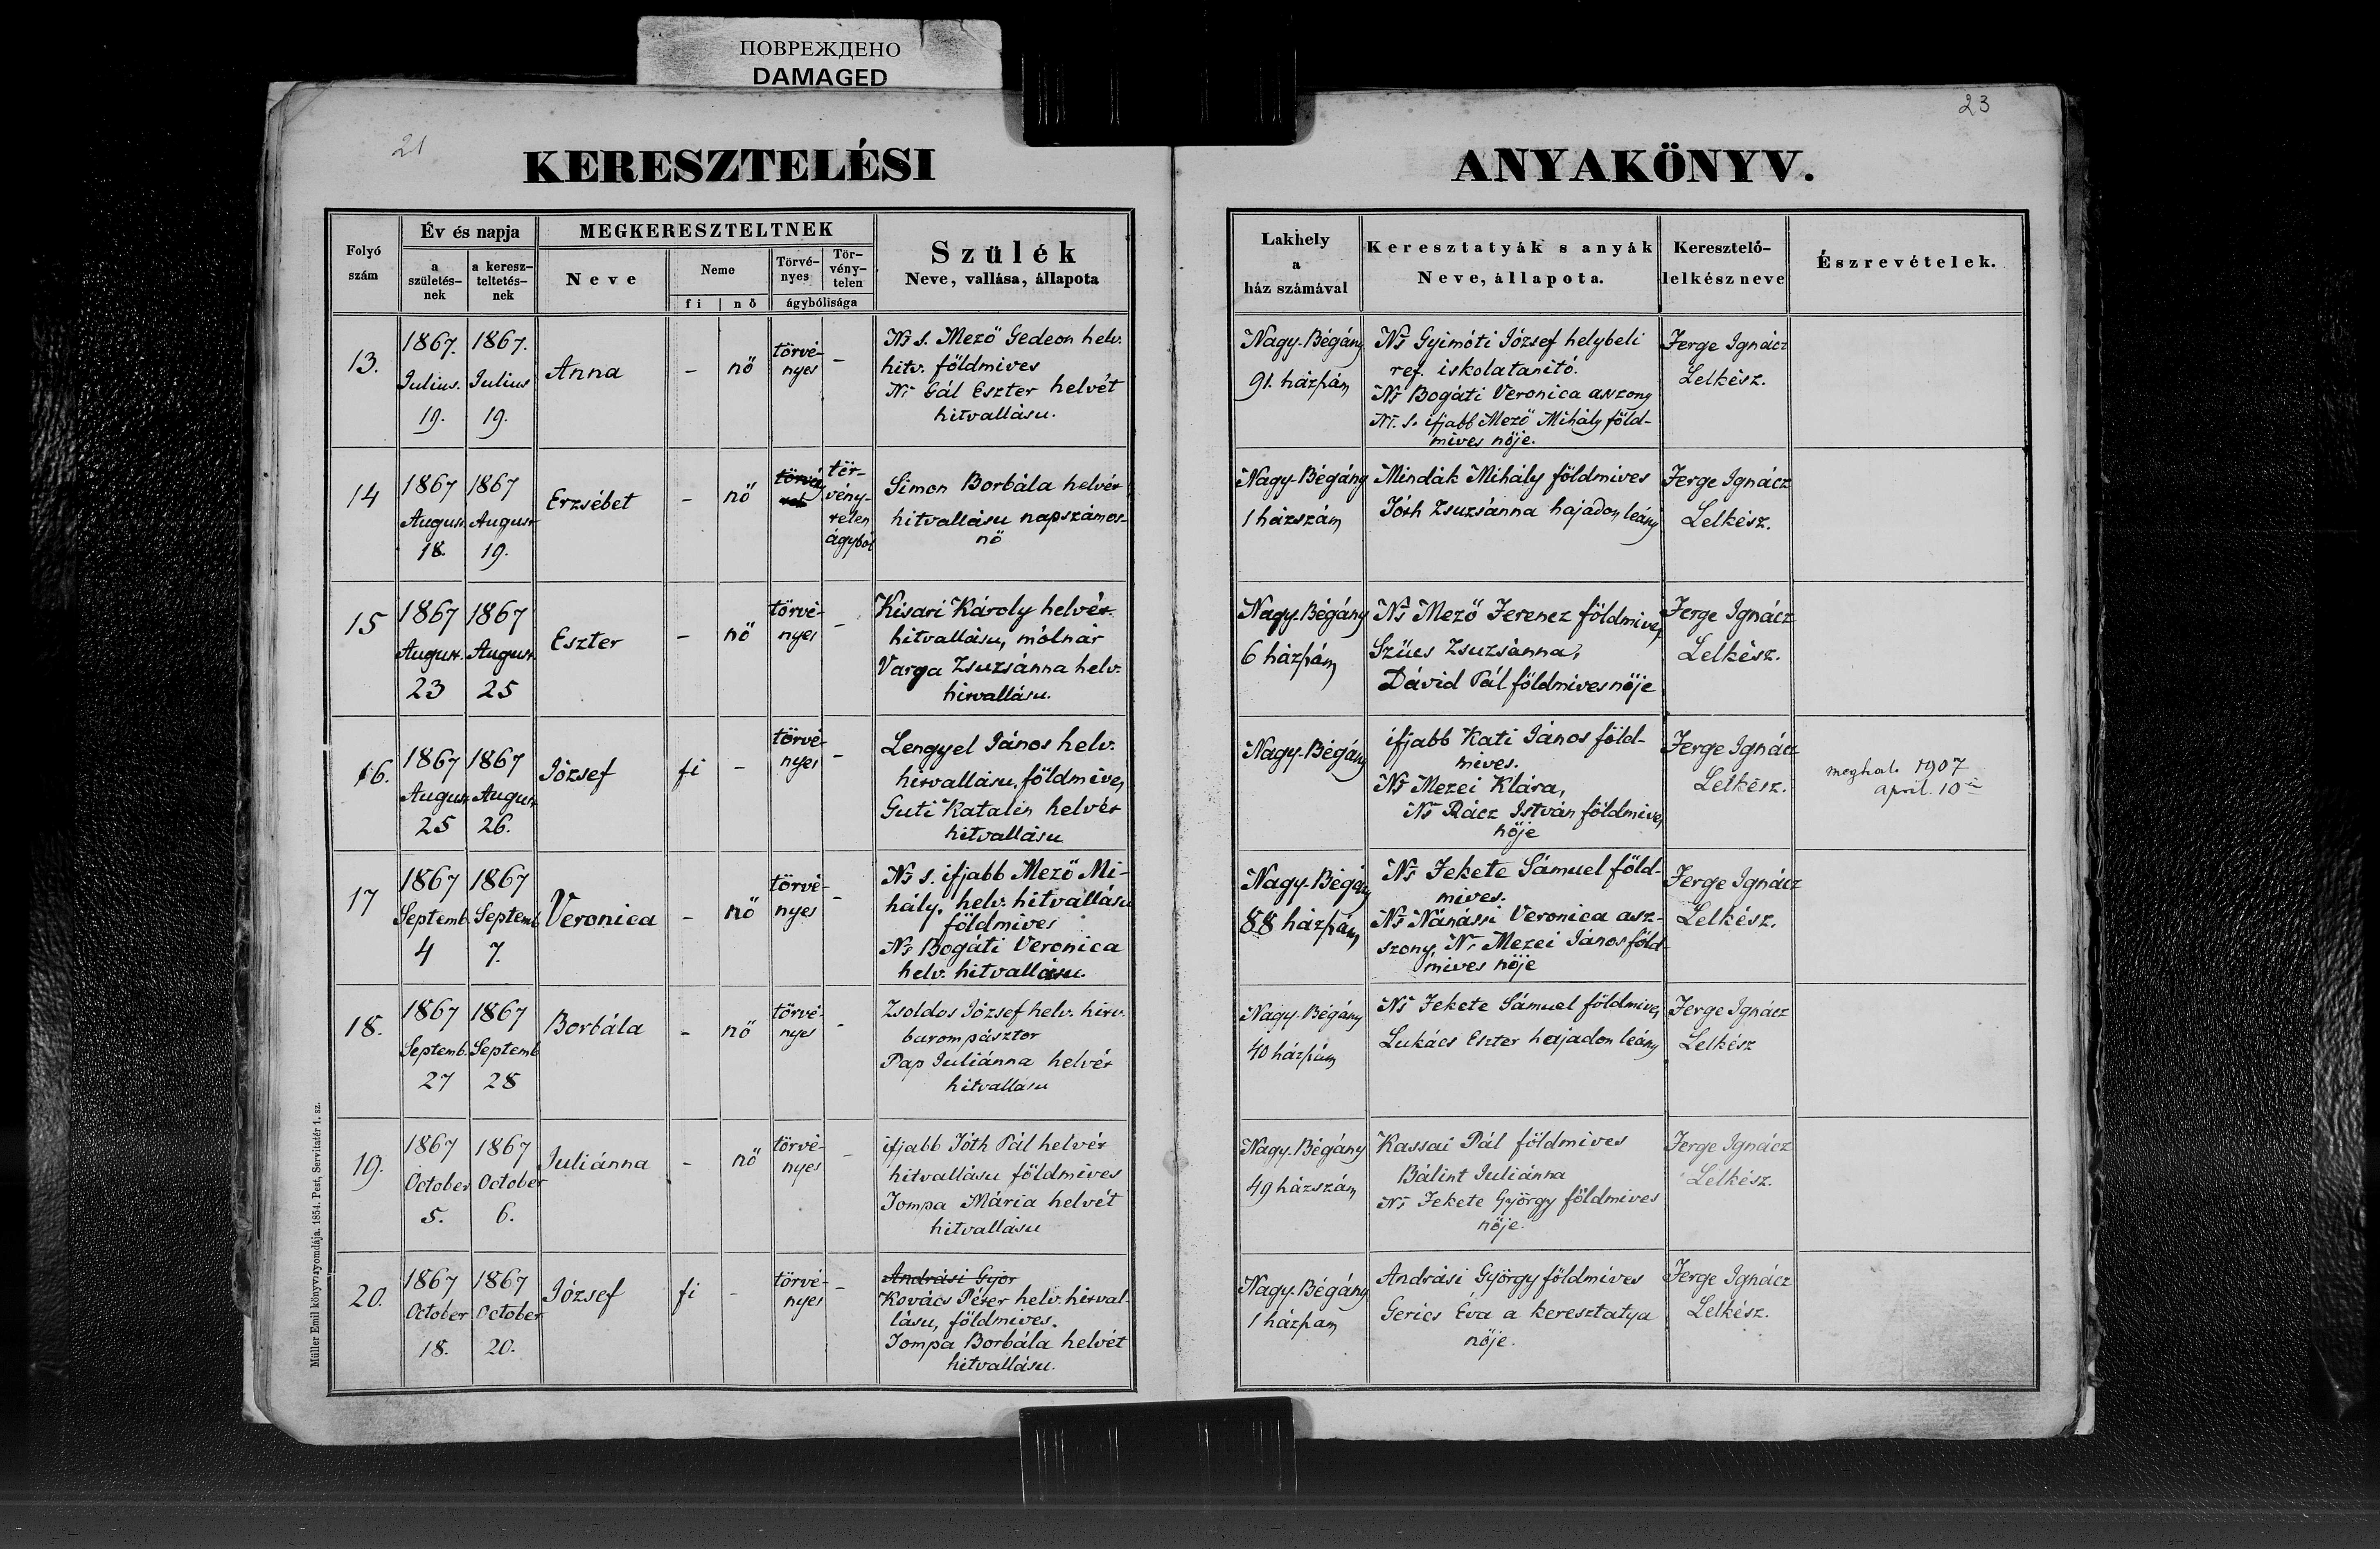 ПОВРЕЖДЕНО
DAMAGED
21
23
KERESZTELÉSI
ANYAKÖNYV.
Folyó
szám
Év és napja
a
születés-
nek
a keresz-
teltetés-
nek
MEGKERESZTELTNEK
Neve
Neme
fi
nő
Törvé-
nyes
Tör-
vény-
telen
ágybólisága
Szülék
Neve, vallása, állapota
Lakhely
a
ház számával
Keresztatyák s anyák
Neve, állapota.
Keresztelő-
lelkész neve
Észrevételek.
13.
1867.
Julius.
19.
1867.
Julius
19.
Anna
-
nő
törvé-
nyes
-
Ns s. Mező Gedeon helv.
hitv. földmives
Ns Gál Eszter helvét
hitvallásu.
Nagy-Bégány
91. házszám
Ns Gyimóti József helybeli
ref. iskolatanitó.
Ns Bogáti Veronica asszony
Ns. s. ifjabb Mező Mihály föld-
mives nője.
Ferge Ignácz
Lelkész.
14
1867
August.
18.
1867
August
19.
Erzsébet
-
nő
tör-
vény-
telen
ágyból
Simon Borbála helvét
hitvallásu napszámos-
nő
Nagy-Bégány
1 házszám
Mindák Mihály földmives
Tóth Zsuzsánna hajadon leány
Ferge Ignácz
Lelkész.
15
1867
August.
23
1867
August.
25
Eszter
-
nő
törvé-
nyes
-
Kisari Károly helvét
hitvallásu, mólnár
Varga Zsuzsánna helv.
hitvallásu.
Nagy-Bégány
6 házszám
Ns Mező Ferencz földmives
Szücs Zsuzsánna,
Dávid Pál földmives nője
Ferge Ignácz
Lelkész.
16.
1867
August
25
1867
August
26.
József
fi
-
törvé-
nyes
-
Lengyel János helv.
hitvallásu, földmives
Guti Katalin helvét
hitvallásu
Nagy-Bégány
ifjabb Kati János föld-
mives.
Ns Mezei Klára,
Ns Rácz István földmives
nője
Ferge Ignácz
Lelkész.
meghal. 1907
april. 10-n
17
1867
Septemb.
4
1867
Septemb
7.
Veronica
-
nő
törvé-
nyes
-
Ns s. ifjabb Mező Mi-
hály, helv. hitvallásu
földmives
Ns Bogáti Veronica
helv. hitvallásu.
Nagy-Bégány
88 házszám
Ns Fekete Sámuel föld-
mives.
Ns Nánássi Veronica asz-
szony, Ns Mezei János föld-
mives nője
Ferge Ignácz
Lelkész.
18.
1867
Septemb.
27
1867
Septemb
28
Borbála
-
nő
törvé-
nyes
-
Zsoldos József helv. hitv.
barompásztor
Pap Juliánna helvét
hitvallásu
Nagy-Bégány
40 házszám
Ns Fekete Sámuel földmives
Lukács Eszter hajadon leány
Ferge Ignácz
Lelkész
19.
1867
October
5.
1867
October
6.
Juliánna
-
nő
törvé-
nyes
-
ifjabb Tóth Pál helvét
hitvallásu földmives
Tompa Mária helvét
hitvallásu
Nagy-Bégány
49 házszám
Kassai Pál földmives
Bálint Juliánna
Ns Fekete György földmives
nője.
Ferge Ignácz
Lelkész.
20.
1867
October
18.
1867
October
20.
József
fi
-
törvé-
nyes
-
Andrási Györ
Kovács Péter helv. hitval-
lásu, földmives.
Tompa Borbála helvét
hitvallásu.
Nagy-Bégány
1 házszam
Andrási György földmives
Gerics Éva a keresztatya
nője.
Ferge Ignácz
Lelkész.
Müller Emil könyvnyomdája. 1854. Pest, Servitatér 1. sz.